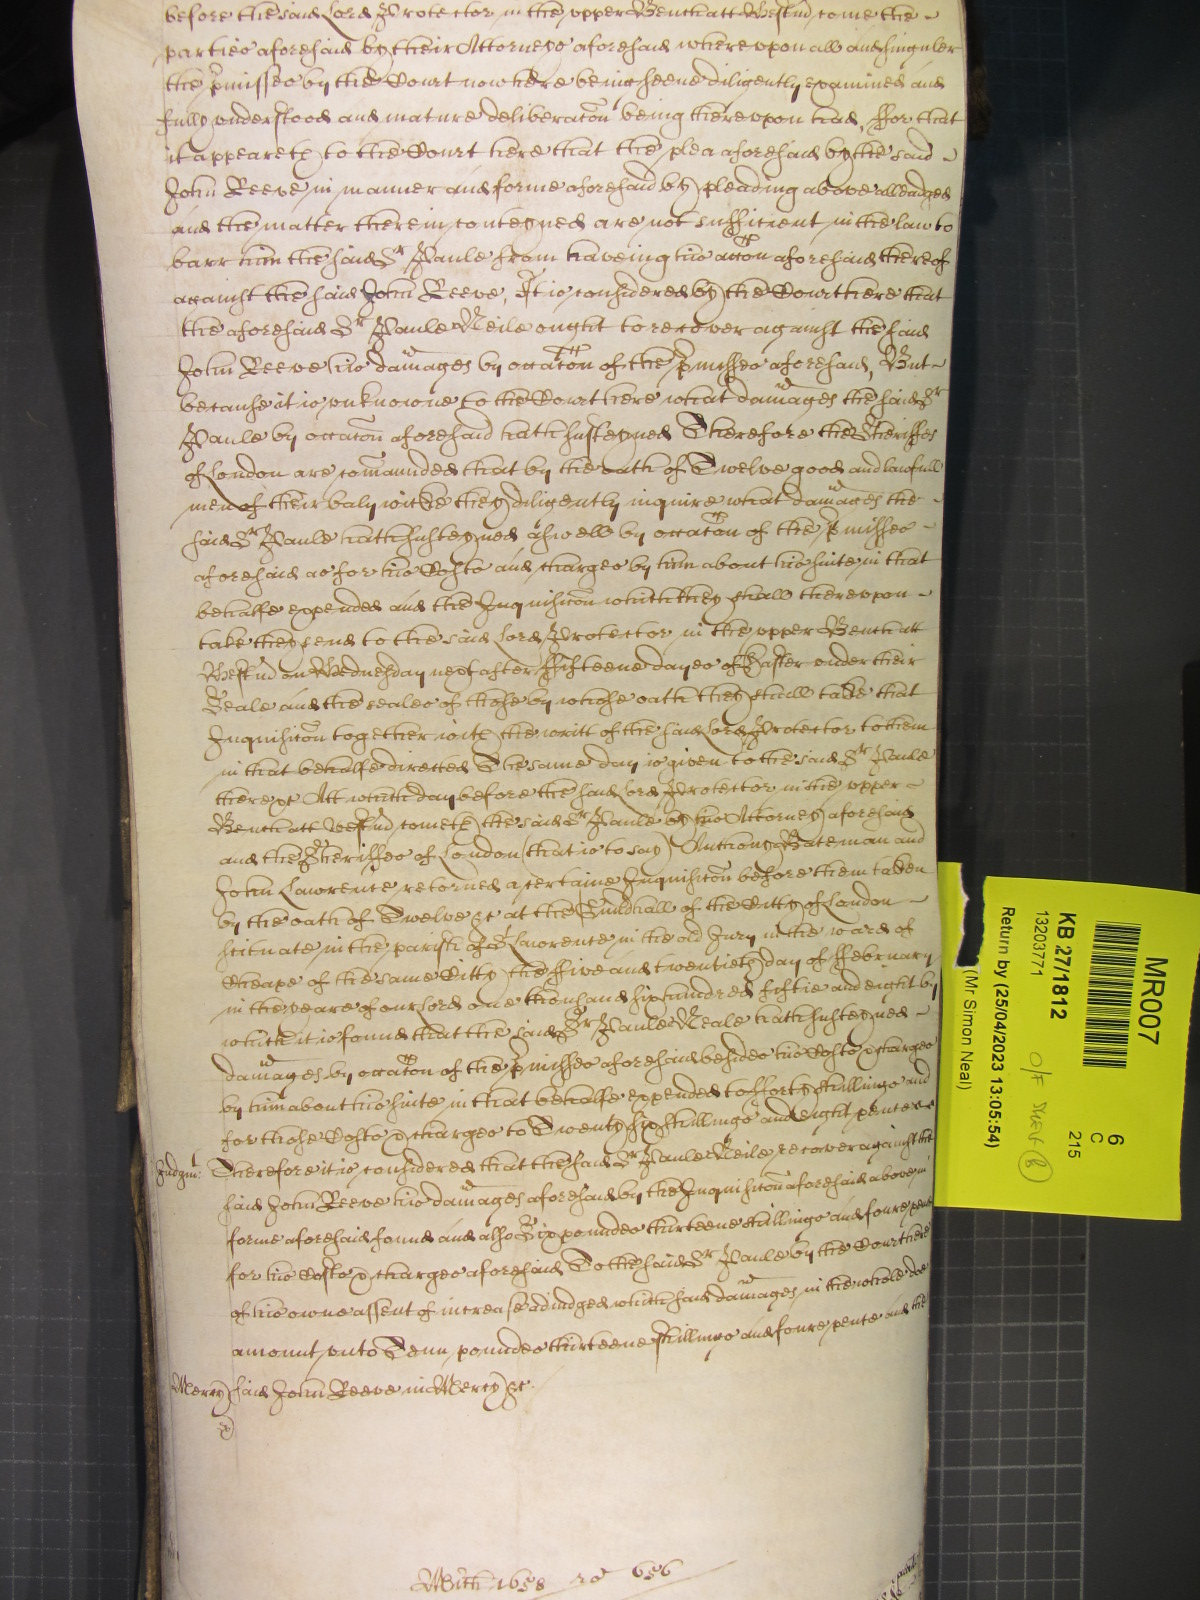 before the said Lord Protector in the upper Bench att Westmr come the
parties aforesaid by their Attorneys aforesaid whereupon all and singuler
the p'misses by the Court now here being seene diligently examined and
fully understood and mature deliberacon being thereupon had, ffor that
it appeareth to the Court here that the plea aforesaid by the said
John Reeve in manner and forme aforesaid by pleading above alleadged
and the matter therein conteyned are not sufficient in the law to
barr him the said Sr Paule from haveing his accon aforesaid thereof
against the said John Reeve, It is considered by the Court here that
the aforesaid Sr Paule Neile ought to recover against the said
John Reeve his damages by occacon of the p'misses aforesaid, But
because it is unknowne to the Court here what damages the said Sr
Paule by occacon aforesaid hath susteyned Therefore the Sheriffes
of London are comaunded that by the oath of Twelve good and lawfull
men of their balywicke they diligently inquire what damages the
said Sr Paule hath susteyned aswell by occacon of the p'misses
aforesaid as for his Costs and charges by him about his suite in that
behalfe expended and the Inquisicon which they shall thereupon
take they send to the said Lord Protector in the upper Bench att
Westmr on Wednesday next after ffifteene dayes of Easter under their
Seale and the seales of those by whose oath they shall take that
Inquisicon together with the writt of the said Lord Protector to them
in that behalfe directed The same day is given to the said Sr Paule
there &c Att which day before the said Lord Protector in the upper
Bench att Westmr cometh the said Sr Paule by his Attorney aforesaid
and the Sheriffes of London (that is to say) Anthony Bateman and
John Lawrence retorned a certaine Inquisicon before them taken
by the oath of Twelve &c at the Guildhall of the Citty of London
scituate in the parish of St Lawrence in the old Jury in the ward of
Cheape of the same Citty the ffive and twentieth day of ffebruary
in the yeare of our Lord one thousand six hundred fiftie and eight by
which it is found that the said Sr Paule Neale hath susteyned
damages by occacon of the p'misses aforesaid besides his Costs & charges
by him about his suite in that behalfe expended to fforty shillings and
for those Costs & charges to Twenty six shillings and eight pence
Judgmt: Therefore it is considered that the said Sr Paule Neile recover against the
said John Reeve his damages aforesaid by the Inquisicon aforesaid above in
forme aforesaid found and also Six poundes thirteene shillings and foure pence
for his Costs & charges aforesaid To the said Sr Paule by the Court here
of his owne assent of increase adiudged which said damages in the whole doe
amount unto Tenn poundes thirteene shillings and foure pence and the
Mercy said John Reeve in Mercy &c.
Mich 1658 ro 656
MR007
KB 27/1812
13203771
Return by (25/04/2023 13:05:54)
(Mr Simon Neal)
6
C
215
O/F SHELF (B)